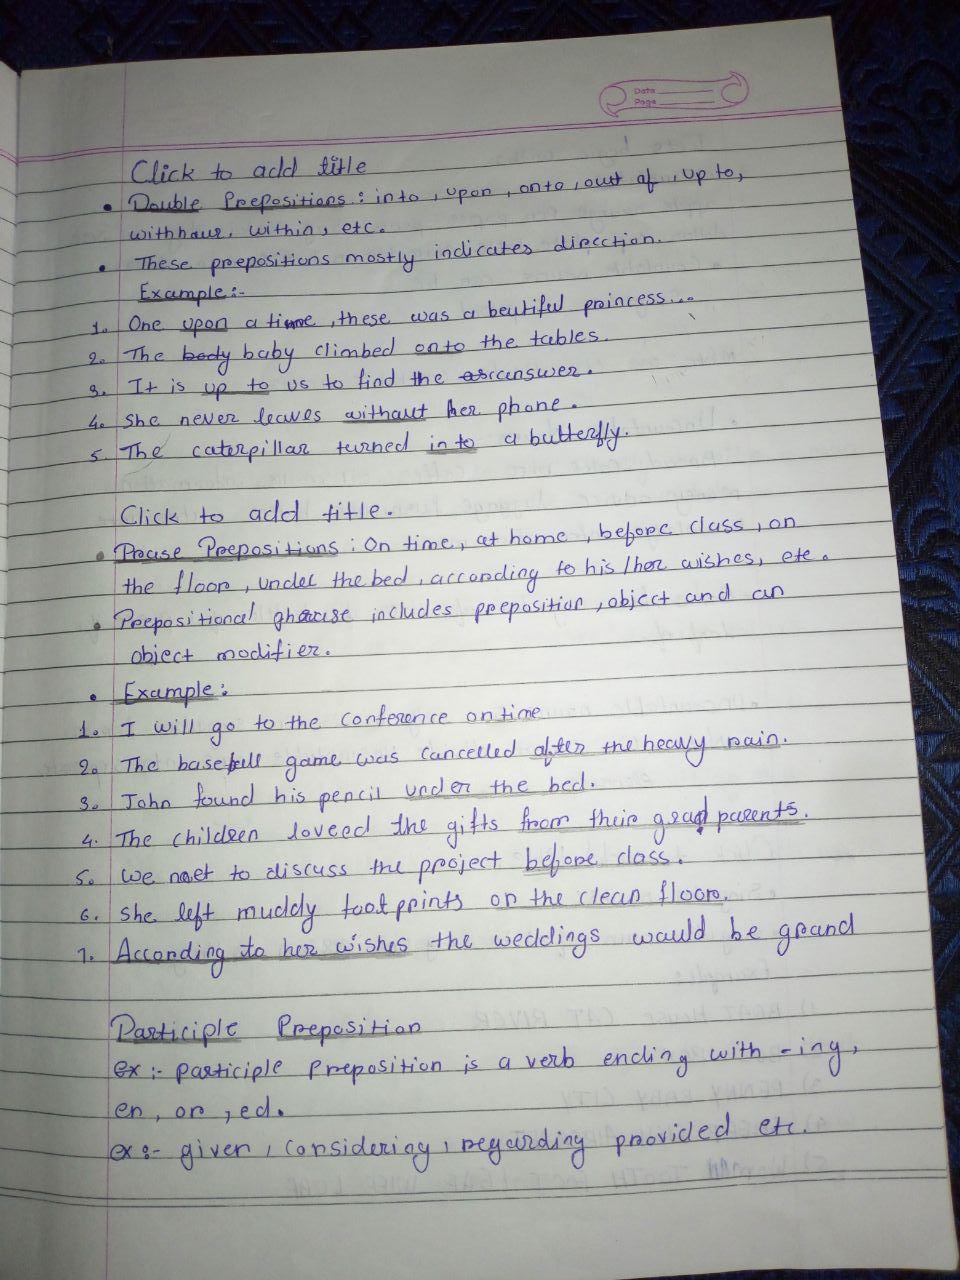 Date
Page
Click to add title
• Double Prepositions : into, upon, onto, out of, up to,
withhaur, within, etc.
• These prepositions mostly indicates direction.
Example:-
1. One upon a time, these was a beutiful princess...
2. The body baby climbed onto the tables.
3. It is up to us to find the answer.
4. She never leaves without her phone.
5. The caterpillar turned in to a butterfly.
Click to add title.
• Prause Prepositions : On time, at home, before class, on
the floor, under the bed, according to his/her wishes, etc.
• Prepositional pharause includes preposition, object and an
object modifier.
• Example:
1. I will go to the conference on time
2. The baseball game was cancelled after the heavy rain.
3. John found his pencil under the bed.
4. The children loveed the gifts from their grand parents.
5. We meet to discuss the project before class.
6. She left muddy foot prints on the clean floor.
7. According to her wishes the weddings would be grand
Participle Preposition
ex :- participle Preposition is a verb ending with -ing,
en, or, ed.
ex :- given, considering, regarding provided etc.